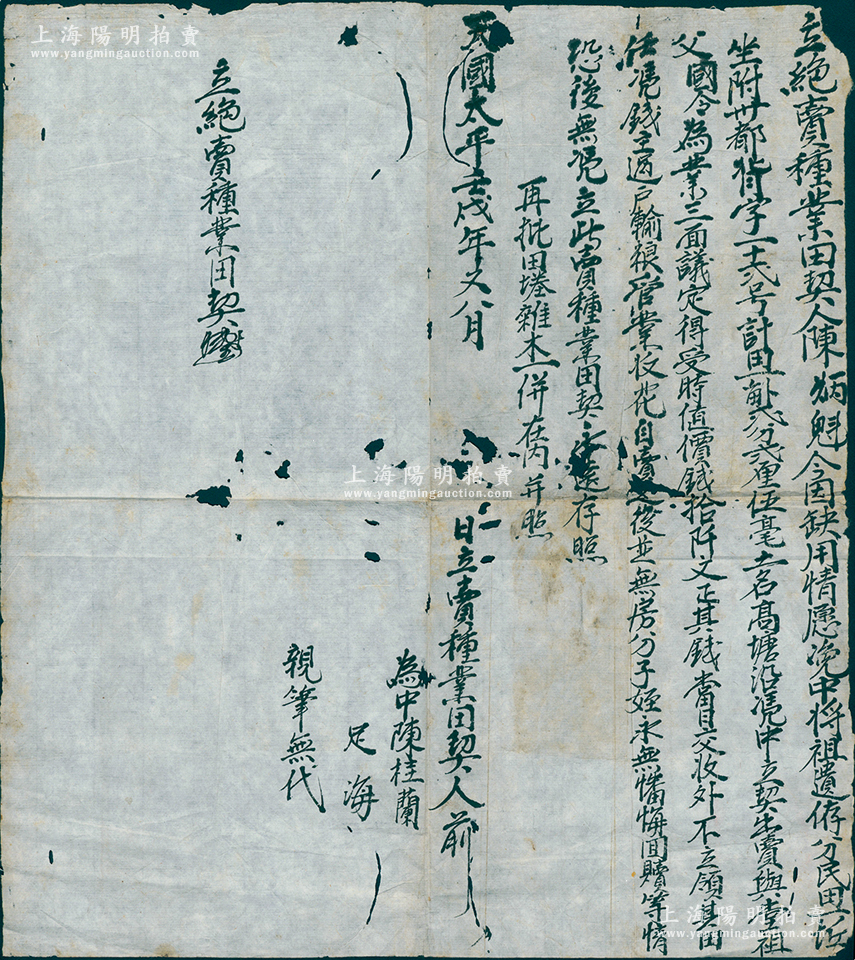 立絕賣種業田契人陳炳魁今因缺用情愿浼中将祖遺侢分民田一坵
坐附卅都背字一十弍号計田一畝弍分弍厘伍毫土名髙塘沿憑中立契出賣與
父國今為業三面議定得受時值價錢拾阡文正其錢當日交收外不立領其田
任憑錢主過户輸粮管業收花自賣之後並無房分子姪永無憣悔回贖等情
恐後無憑立此賣種業田契永遠存照
再批田塝雜木一併在內并照
天國太平壬戌年又八月 日立賣種業田契人前
為中陳桂蘭
足海
親筆無代
立絕賣種業田契
上海陽明拍賣
www.yangmingauction.com
上海陽明拍賣
www.yangmingauction.com
上海陽明拍賣
www.yangmingauction.com